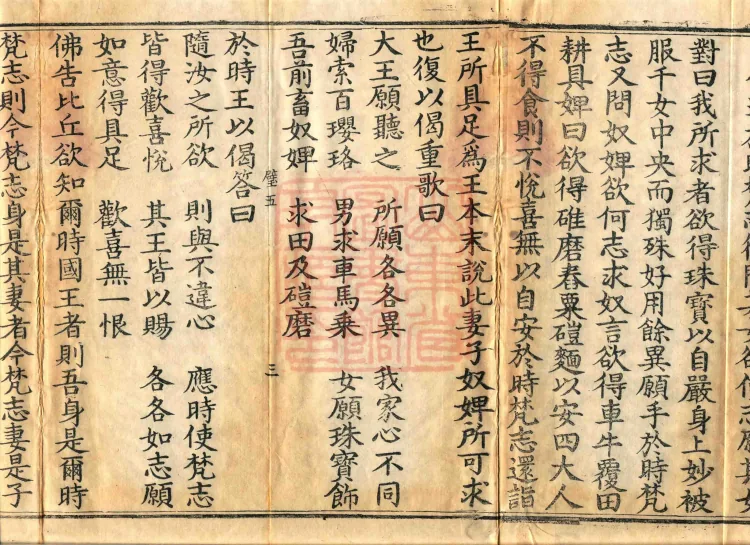 對曰我所求者欲得珠寶以自嚴身上妙被
服千女中央而獨珠好用餘異願手於時梵
志又問奴婢欲何志求奴言欲得車牛覆田
耕具婢曰欲得碓磨舂粟磑麵以安四大人
不得食則不悅喜無以自安於時梵志還詣
王所具足爲王本末說此妻子奴婢所可求
也復以偈重歌曰
大王願聽之　所願各各異　我家心不同
婦索百瓔珞　男求車馬乘　女願珠寶飾
吾前畜奴婢　求田及磑磨
璧五　三
於時王以偈答曰
隨汝之所欲　則與不違心　應時使梵志
皆得歡喜悅　其王皆以賜　各各如志願
如意得具足　歡喜無一恨
佛告比丘欲知爾時國王者則吾身是爾時
梵志則今梵志身是其妻者今梵志妻是子